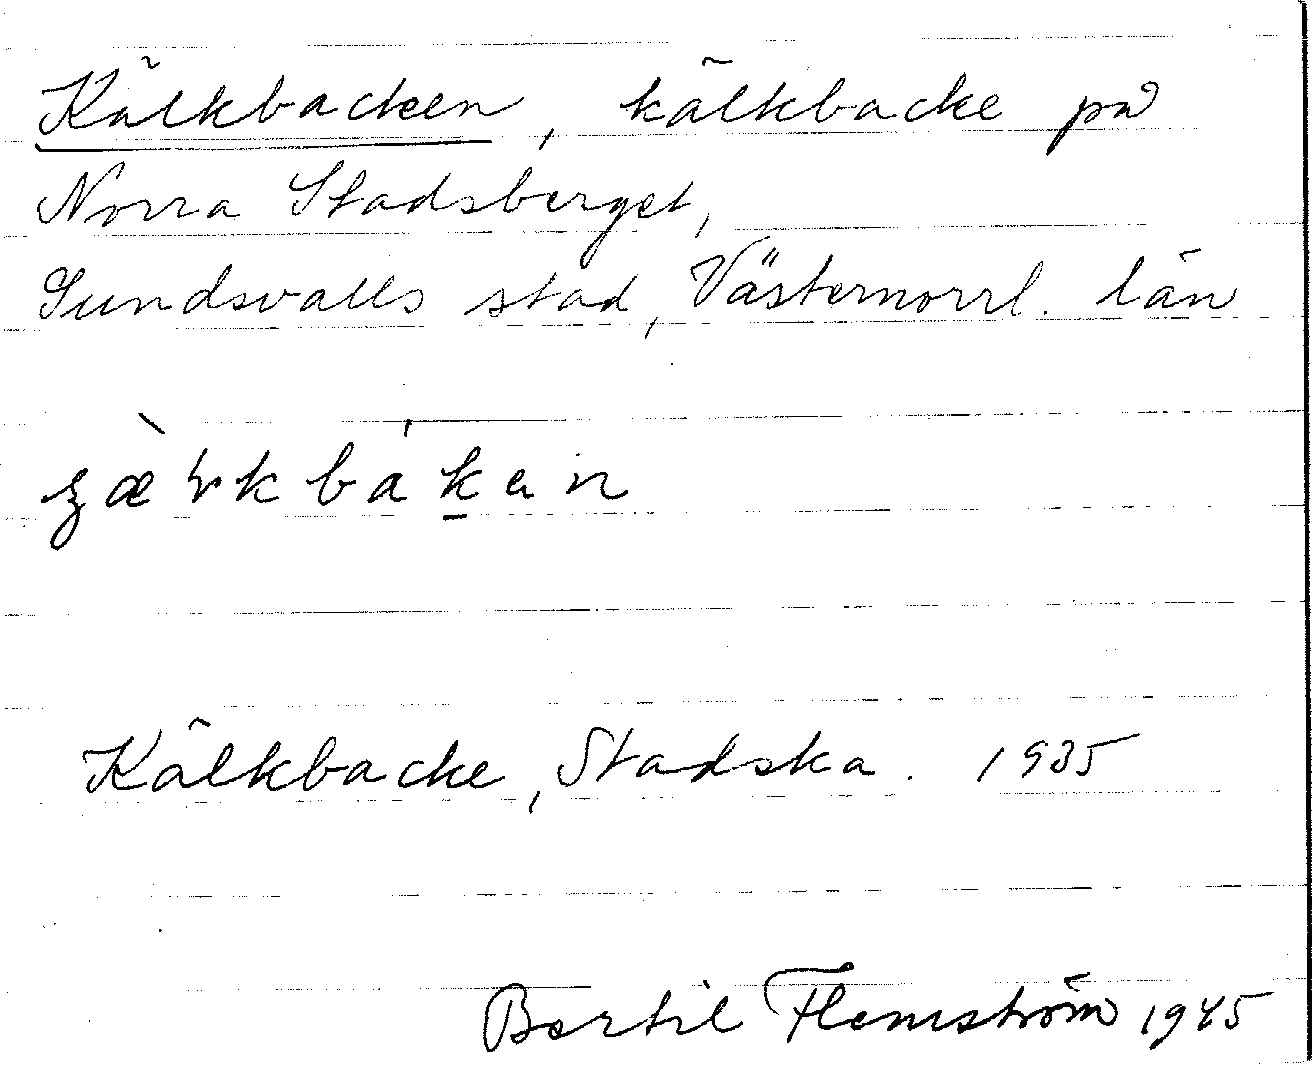 Kälkbacken, kälkbacke på
Norra Stadsberget,
Sundsvalls stad, Västernorrl. län
Kälkbacke, Stadska. 1935
Bertil Flemström 1945